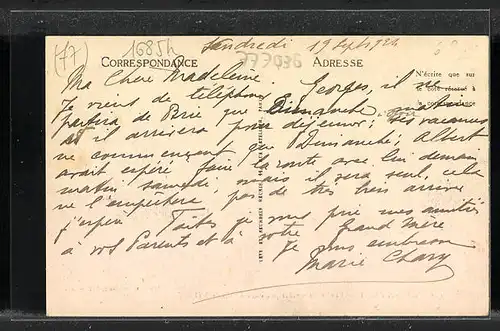 (77) 16854 Vendredi 19 Sept 1924
777036
CORRESPONDANCE ADRESSE
N'écrite que sur
le côté réservé à
la correspondance
Ma Chère Madeleine.
Je viens de téléphoner Georges, il ne
partira de Paris que Dimanche matin
et il arrivera pour déjeuner; ses vacances
ne commençant que Dimanche, Albert
avait espéré faire la route avec lui demain
matin samedi, mais il sera seul, cela
ne l'empêchera pas de très bien arriver
j'espère. Faites je vous prie mes amitiés
à vos Parents et à votre Grand Mère
Je vous embrasse
Marie Chary